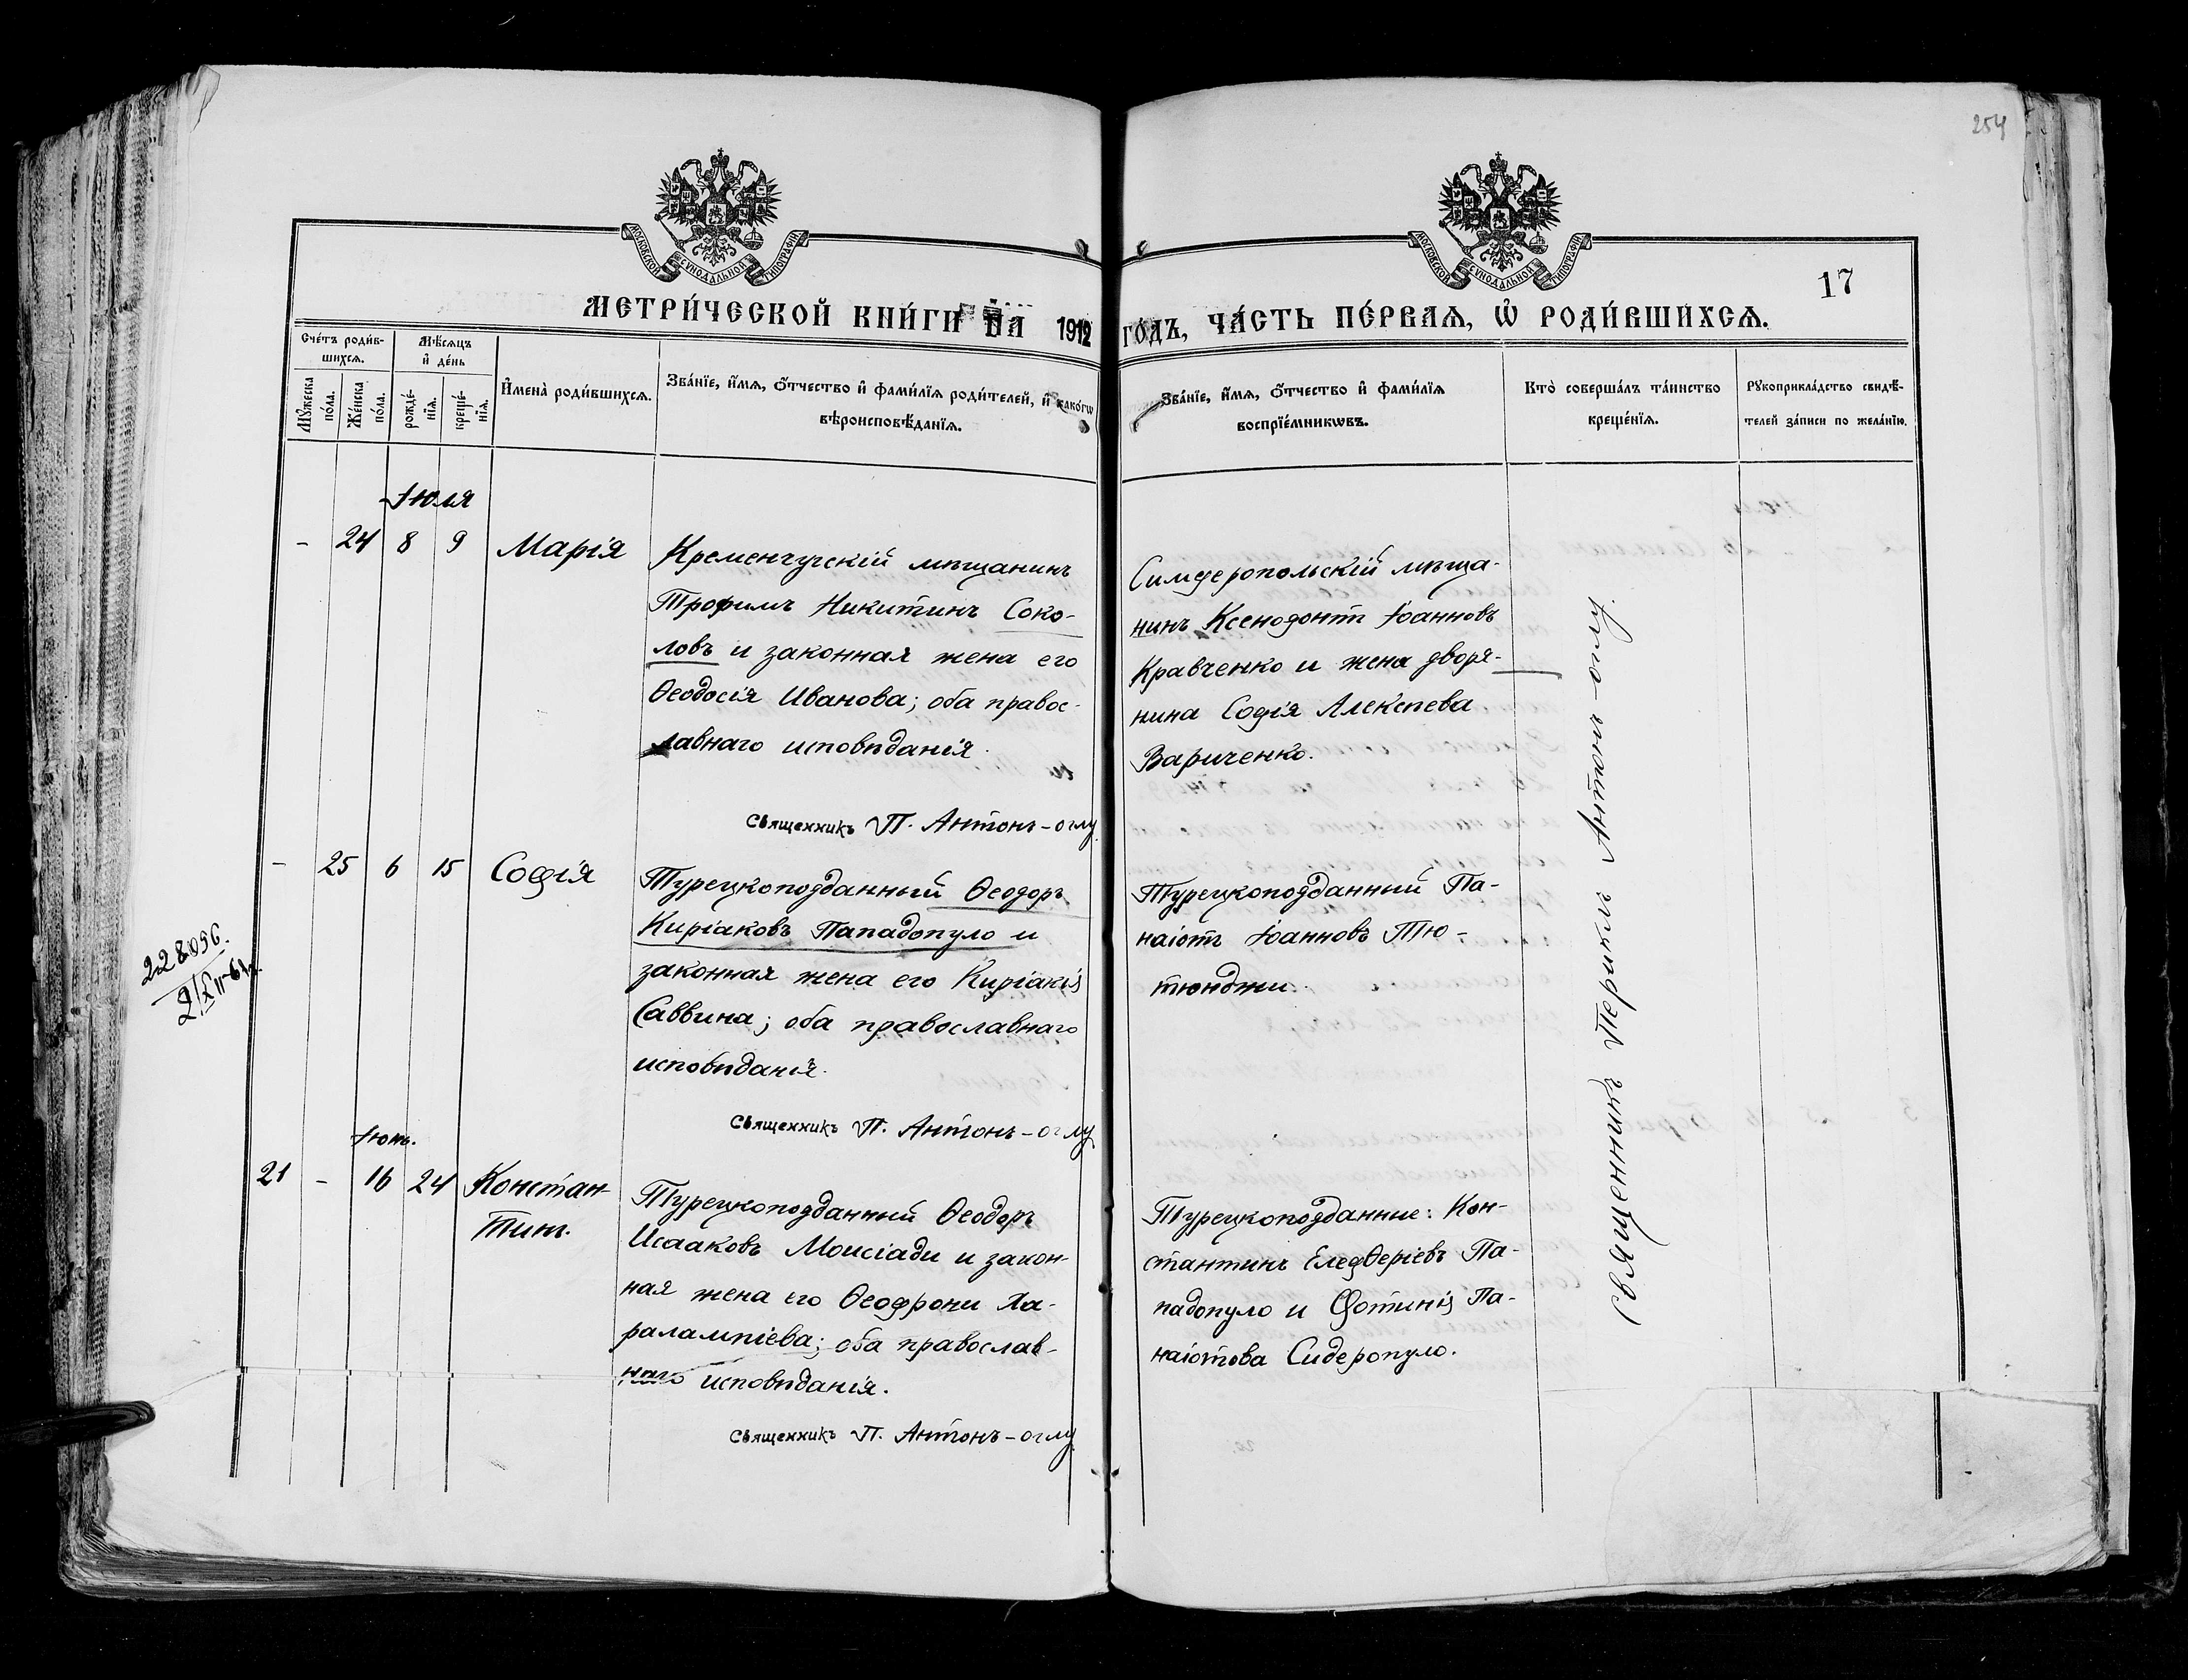 254
МОСКОВСКОЙ СѴНОДАЛЬНОЙ ТИПОГРАФІИ
МОСКОВСКОЙ СѴНОДАЛЬНОЙ ТИПОГРАФІИ
17
МЕТРИ́ЧЕСКОЙ КНИ́ГИ НА 1912 ГО́ДЪ, ЧА́СТЬ ПЕ́РВАЯ, Ѡ РОДИ́ВШИХСЯ.
Сче́тъ роди́в-
шихся.
Мꙋжеска по́ла.
Же́нска по́ла.
Мѣ́сяцъ
и҆ де́нь
рожде́-
нїя.
креще́-
нїя.
И҆мена̀ роди́вшихся.
Зва́нїе, и҆́мя, ѻ҆́тчество и҆ фами́лїя роди́телей, и҆ како́гѡ
вѣроисповѣ́данїя.
Зва́нїе, и҆́мя, ѻ҆́тчество и҆ фами́лїя
воспрїе́мникѡвъ.
Кто̀ соверша́лъ та́инство
креще́нїя.
Рꙋкоприкла́дство свидѣ́-
телей за́писи по жела́нїю.
Іюля
- 24 8 9 Марія
Кременчугскій мѣщанинъ
Трофимъ Никитинъ Соко-
ловъ и законная жена его
Ѳеодосія Иванова; оба правос-
лавнаго исповѣданія.
Священникъ П. Антонъ-оглу
Симферопольскій мѣща-
нинъ Ксенофонтъ Іоанновъ
Кравченко и жена дворя-
нина Софія Алексѣева
Вариченко.
Священникъ Периклъ Антонъ-оглу.
- 25 6 15 Софія
Турецкоподданный Ѳеодоръ
Киріаковъ Пападопуло и
законная жена его Киріакія
Саввина; оба православнаго
исповѣданія.
Священникъ П. Антонъ-оглу
Турецкоподданный Па-
наіотъ Іоанновъ Тю-
тюнджи.
228096.
Іюнь.
21 - 16 24 Констан-
тинъ.
Турецкоподданный Ѳеодоръ
Исааковъ Моисіади и закон-
ная жена его Ѳеофрони Ха-
ралампіева; оба православ-
наго исповѣданія.
Священникъ П. Антонъ-оглу
Турецкоподданные: Кон-
стантинъ Елевѳеріевъ Па-
падопуло и Фотинія Па-
наіотова Сидеропуло.